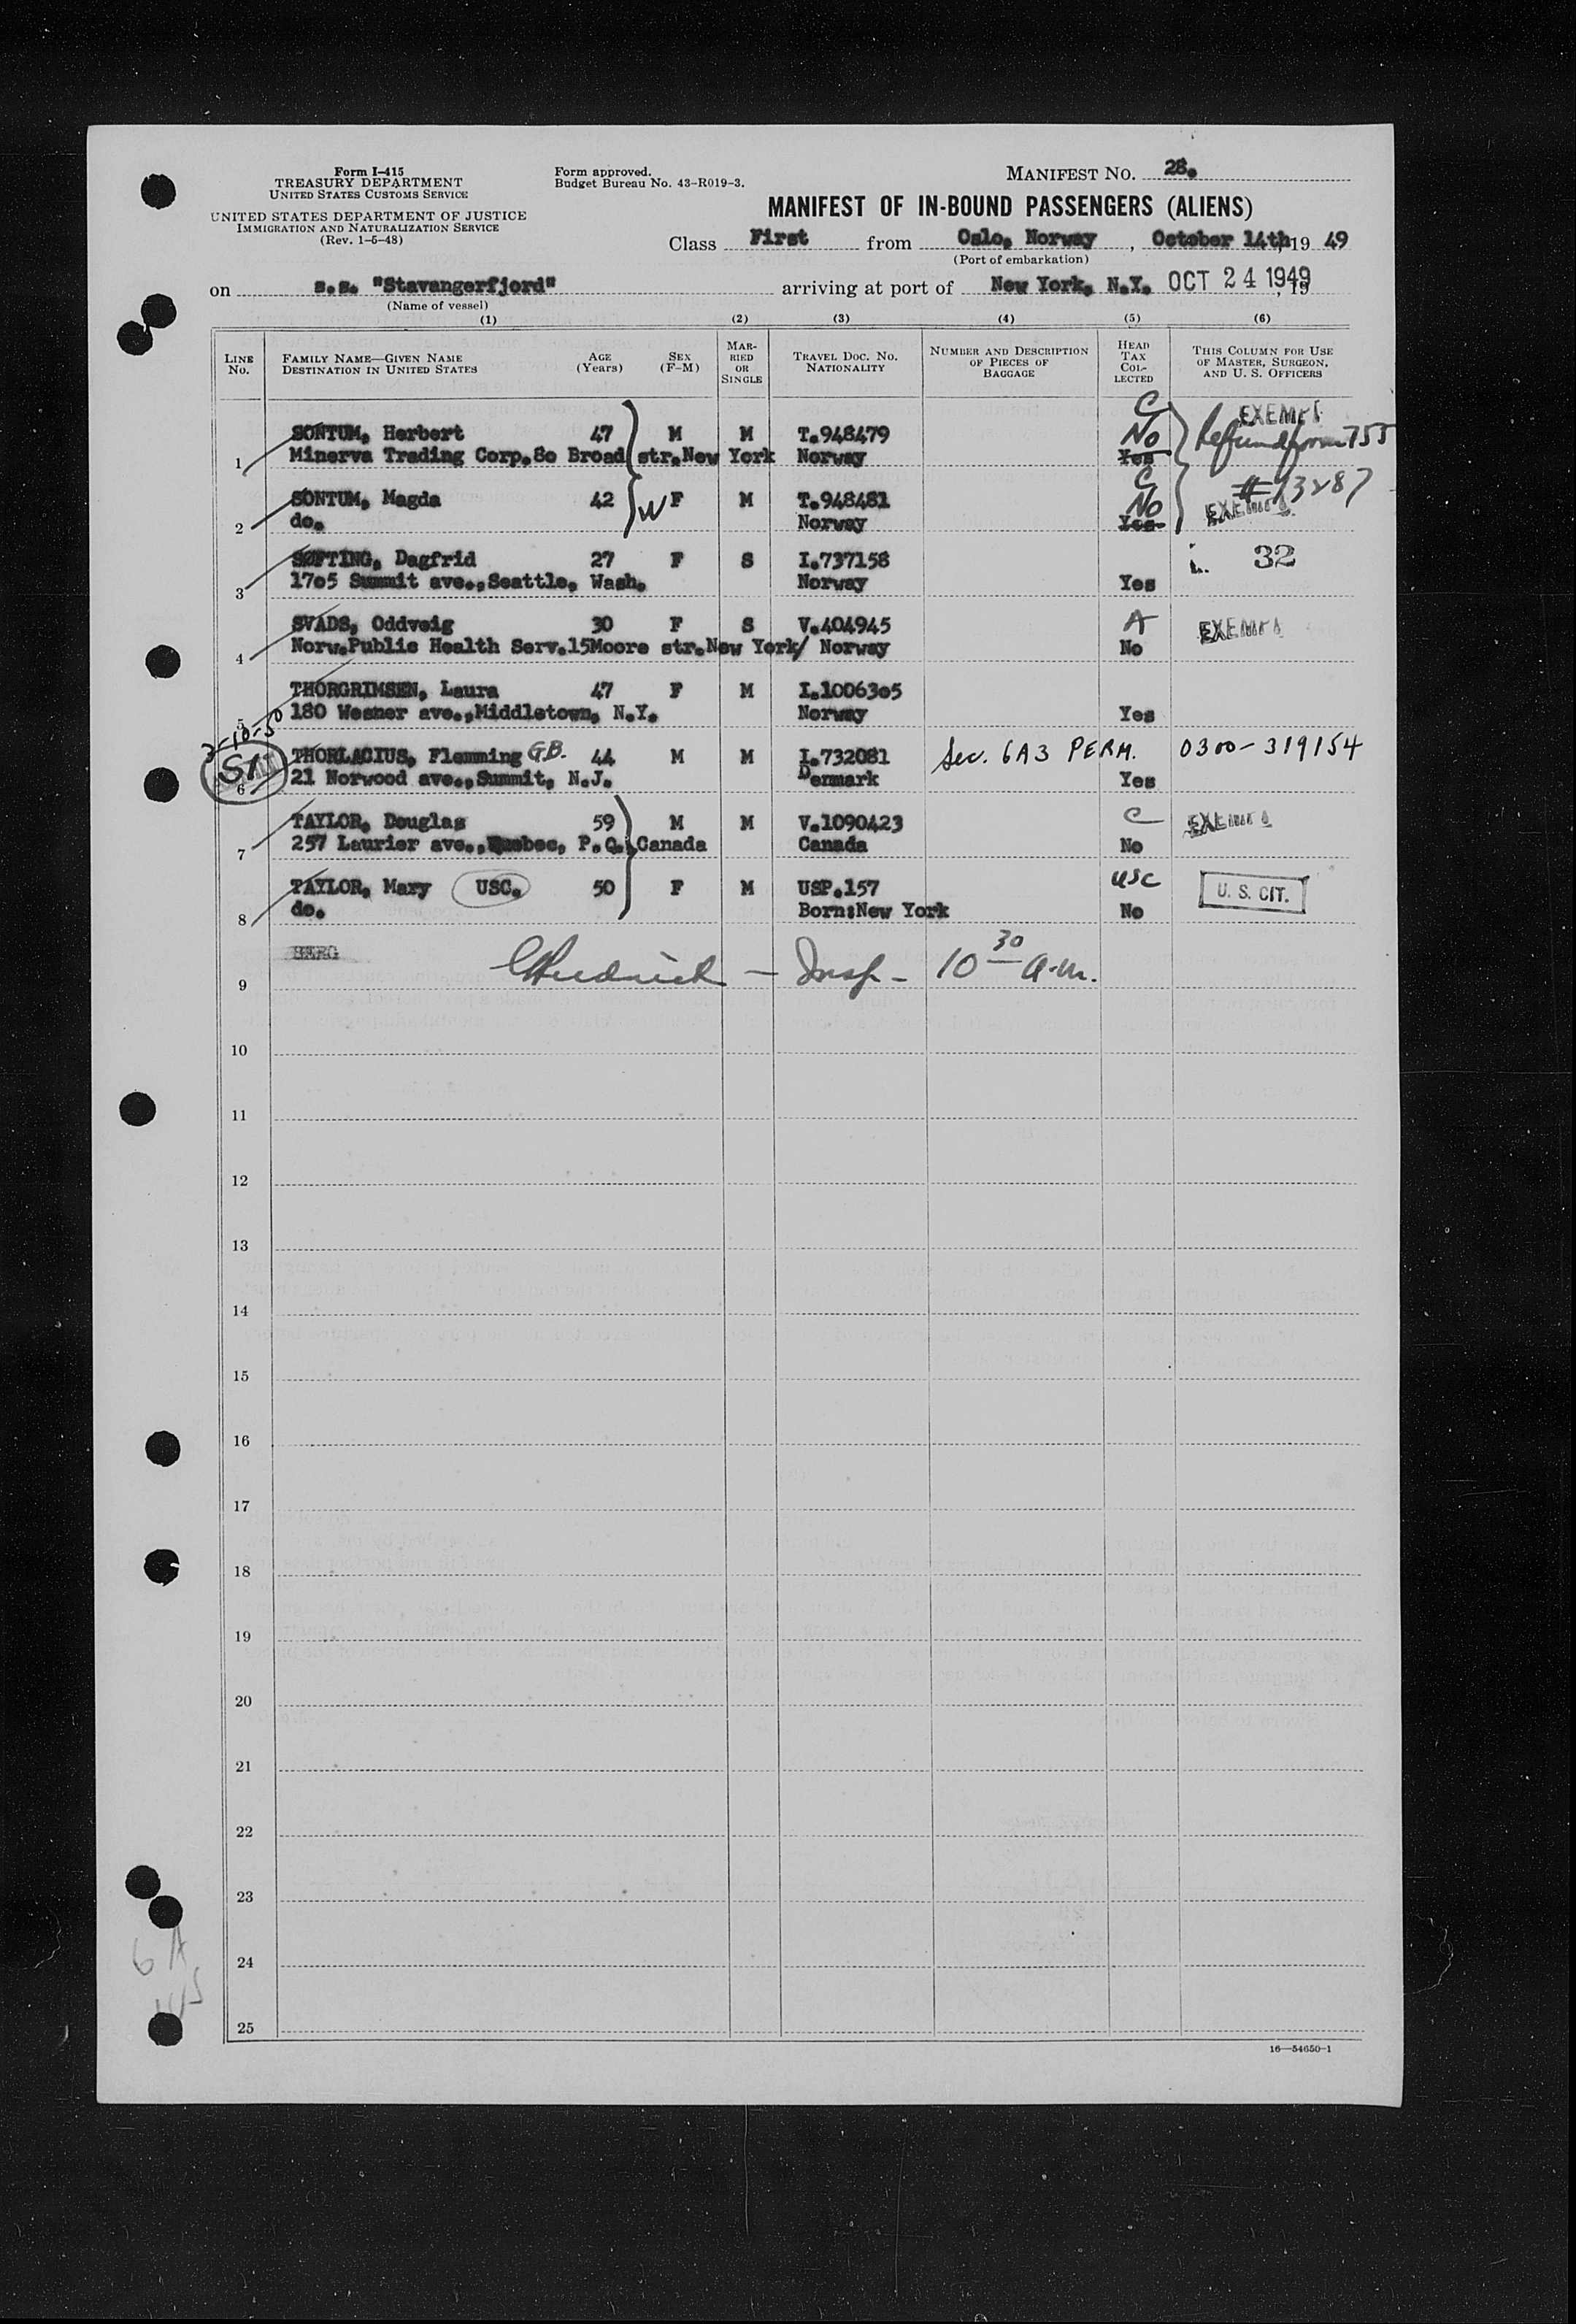 Form I-415
TREASURY DEPARTMENT
UNITED STATES CUSTOMS SERVICE
UNITED STATES DEPARTMENT OF JUSTICE
IMMIGRATION AND NATURALIZATION SERVICE
(Rev. 1-5-48)
Form approved.
Budget Bureau No. 43-R019-3.
MANIFEST No. 28.
MANIFEST OF IN-BOUND PASSENGERS (ALIENS)
Class First from Oslo, Norway, October 14th, 19 49
(Port of embarkation)
on s.s. "Stavangerfjord" arriving at port of New York, N.Y. OCT 24 1949, 19
(Name of vessel)
(1) (2) (3) (4) (5) (6)
LINE No. FAMILY NAME—GIVEN NAME DESTINATION IN UNITED STATES AGE (Years) SEX (F-M) MARRIED OR SINGLE TRAVEL DOC. NO. NATIONALITY NUMBER AND DESCRIPTION OF PIECES OF BAGGAGE HEAD TAX COLLECTED THIS COLUMN FOR USE OF MASTER, SURGEON, AND U. S. OFFICERS
C EXEMPT
SONTUM, Herbert 47 M M T.948479 No Refund form 755
1 Minerva Trading Corp.8o Broad str.New York Norway Yes
C # 73287
SONTUM, Magda 42 W F M T.948481 No EXEMPT
2 do. Norway Yes
SØFTING, Dagfrid 27 F S I.737158 32
3 17o5 Summit ave.,Seattle, Wash. Norway Yes
SVADS, Oddveig 30 F S V.404945 A EXEMPT
4 Norw.Public Health Serv.15Moore str.New York/ Norway No
THORGRIMSEN, Laura 47 F M I.10063o5
5 180 Wesner ave.,Middletown, N.Y. Norway Yes
3-10-50
SI THORLACIUS, Flemming G.B. 44 M M I.732081 Sec. 6A3 PERM. 0300-319154
6 21 Norwood ave.,Summit, N.J. Denmark Yes
TAYLOR, Douglas 59 M M V.1090423 C EXEMPT
7 257 Laurier ave.,Quebec, P.Q.,Canada Canada No
TAYLOR, Mary USC. 50 F M USP.157 USC U. S. CIT.
8 do. Born:New York No
BERG
9 — Insp - 10 30 a.m.
10
11
12
13
14
15
16
17
18
19
20
21
22
23
24
25
6 A
16—54650-1